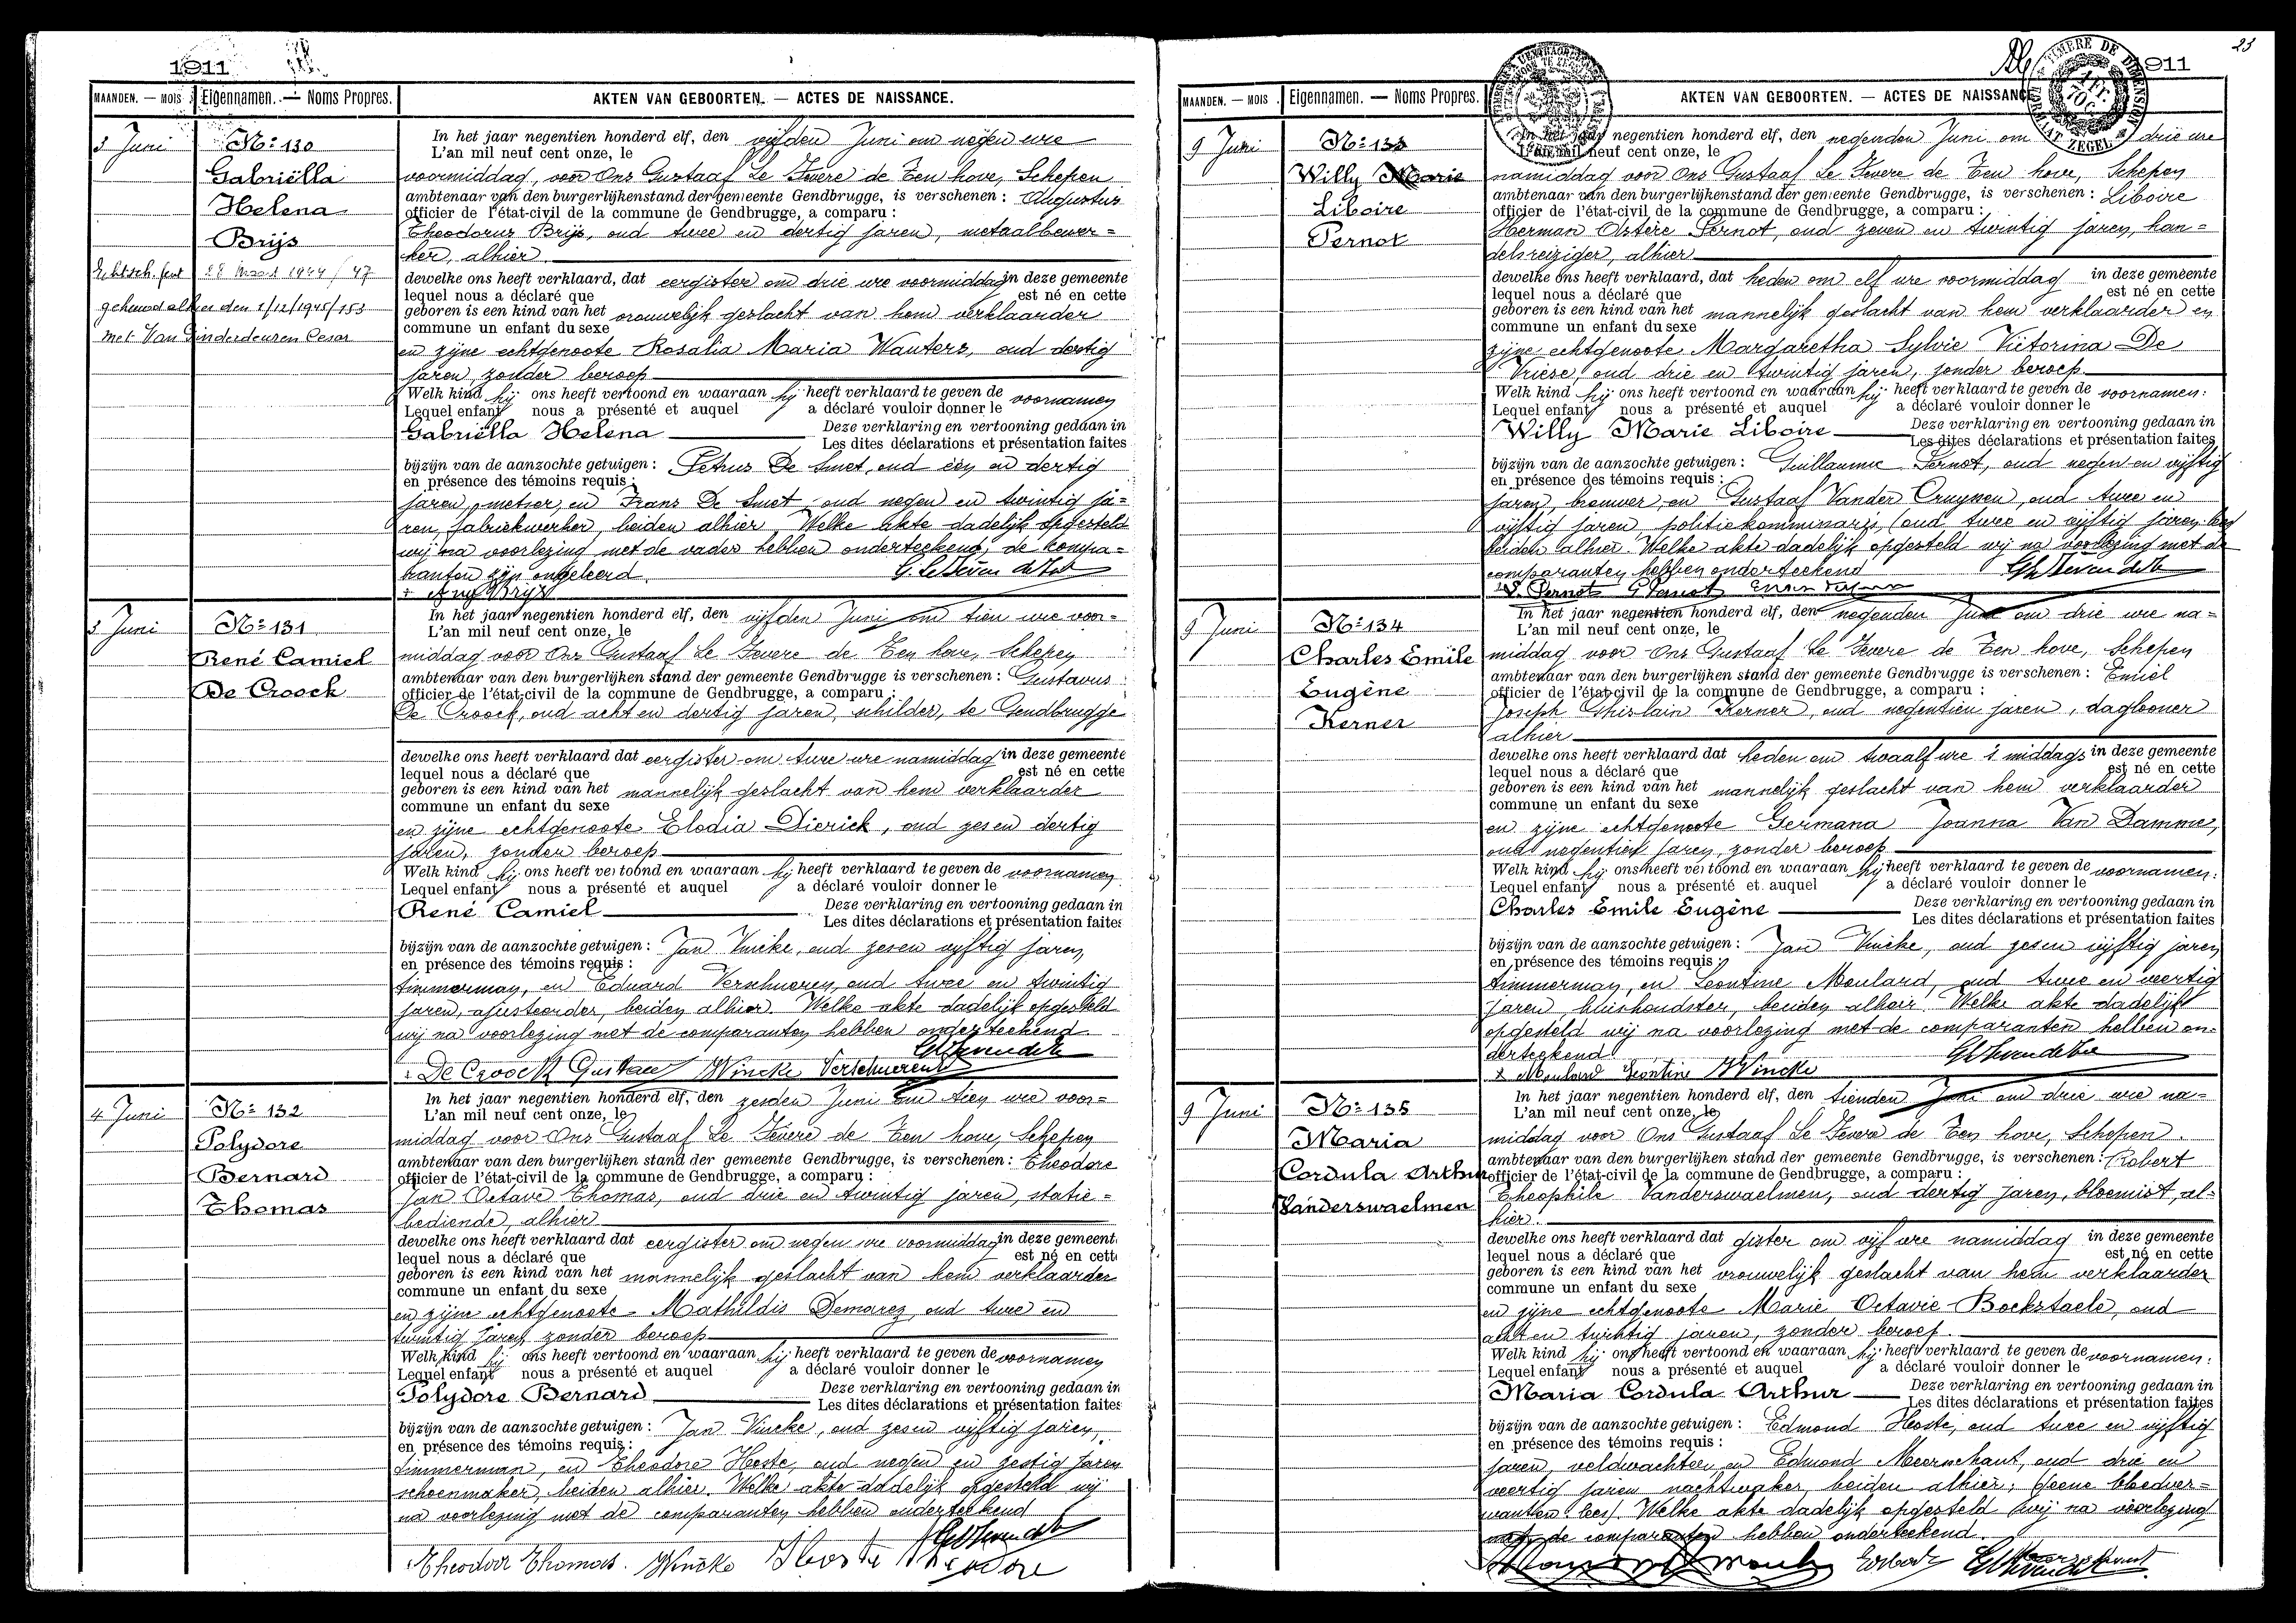 1911
MAANDEN. — MOIS
Eigennamen. — Noms Propres.
AKTEN VAN GEBOORTEN. — ACTES DE NAISSANCE.
3 Juni
No 130
Gabriëlla
Helena
Brijs
Echtsch. 28 Maart 1944/47
gehuwd alhier den 1/12/1945/153
met Van Ginderdeuren Cesar
In het jaar negentien honderd elf, den vijfden Juni om negen ure
L'an mil neuf cent onze, le
voormiddag, voor Ons Gustaaf Le Fevere de Ten hove, Schepen
ambtenaar van den burgerlijkenstand der gemeente Gendbrugge, is verschenen : Augustus
officier de l'état-civil de la commune de Gendbrugge, a comparu :
Theodorus Brijs, oud twee en dertig jaren, metaalbewer=
ker, alhier
dewelke ons heeft verklaard, dat eergister om drie ure voormiddag in deze gemeente
lequel nous a déclaré que est né en cette
geboren is een kind van het vrouwelijk geslacht van hem verklaarder
commune un enfant du sexe
en zijne echtgenoote Rosalia Maria Wauters, oud dertig
jaren, zonder beroep
Welk kind hij ons heeft vertoond en waaraan hij heeft verklaard te geven de voornamen
Lequel enfant nous a présenté et auquel a déclaré vouloir donner le
Gabriëlla Helena Deze verklaring en vertooning gedaan in
Les dites déclarations et présentation faites
bijzijn van de aanzochte getuigen : Petrus De Smet, oud een en dertig
en présence des témoins requis :
jaren, metser, en Frans De Smet, oud negen en twintig ja=
ren, fabriekwerker, beiden alhier. Welke akte dadelijk opgesteld
wij na voorlezing met de vader hebben onderteekend, de kompa=
ranten zijn ongeleerd
Aug Brijs
3 Juni
No 131
René Camiel
De Croock
In het jaar negentien honderd elf, den vijfden Juni om tien ure voor=
L'an mil neuf cent onze, le
middag voor Ons Gustaaf Le Fevere de Ten hove, Schepen
ambtenaar van den burgerlijken stand der gemeente Gendbrugge is verschenen : Gustavus
officier de l'état-civil de la commune de Gendbrugge, a comparu :
De Croock, oud acht en dertig jaren, schilder, te Gendbrugge
dewelke ons heeft verklaard dat eergister om twee ure namiddag in deze gemeente
lequel nous a déclaré que est né en cette
geboren is een kind van het mannelijk geslacht van hem verklaarder
commune un enfant du sexe
en zijne echtgenoote Elodia Dierick, oud zes en dertig
jaren, zonder beroep
Welk kind hij ons heeft vertoond en waaraan hij heeft verklaard te geven de voornamen
Lequel enfant nous a présenté et auquel a déclaré vouloir donner le
René Camiel Deze verklaring en vertooning gedaan in
Les dites déclarations et présentation faites
bijzijn van de aanzochte getuigen : Jan Vincke, oud zes en vijftig jaren,
en présence des témoins requis :
timmerman, en Eduard Verschueren, oud twee en twintig
jaren, ajusteerder, beiden alhier. Welke akte dadelijk opgesteld
wij na voorlezing met de comparanten hebben onderteekend
De Croock Gustaav JVincke Verschueren E
4 Juni
No 132
Polydore
Bernard
Thomas
In het jaar negentien honderd elf, den zesden Juni om tien ure voor=
L'an mil neuf cent onze, le
middag voor Ons Gustaaf Le Fevere de Ten hove, Schepen
ambtenaar van den burgerlijken stand der gemeente Gendbrugge, is verschenen : Theodore
officier de l'état-civil de la commune de Gendbrugge, a comparu :
Jan Octave Thomas, oud drie en twintig jaren, statie=
bediende, alhier
dewelke ons heeft verklaard dat eergister om negen ure voormiddag in deze gemeent
lequel nous a déclaré que est né en cette
geboren is een kind van het mannelijk geslacht van hem verklaarder
commune un enfant du sexe
en zijne echtgenoote Mathildis Demarez, oud twee en
twintig jaren, zonder beroep
Welk kind hij ons heeft vertoond en waaraan hij heeft verklaard te geven de voornamen
Lequel enfant nous a présenté et auquel a déclaré vouloir donner le
Polydore Bernard Deze verklaring en vertooning gedaan in
Les dites déclarations et présentation faites
bijzijn van de aanzochte getuigen : Jan Vincke, oud zes en vijftig jaren,
en présence des témoins requis :
timmerman, en Theodore Hoste, oud negen en zestig jaren
schoenmaker, beiden alhier. Welke akte dadelijk opgesteld wij
na voorlezing met de comparanten hebben onderteekend
Theodoor Thomas. JVincke Hoste Theodore
23
1911
MAANDEN. — MOIS
Eigennamen. — Noms Propres.
AKTEN VAN GEBOORTEN. — ACTES DE NAISSANCE
TIMBRE DE DIMENSION
ZEGEL
9 Juni
No 133
Willy Marie
Liboire
Pernot
In het jaar negentien honderd elf, den negenden Juni om drie ure
L'an mil neuf cent onze, le
namiddag voor Ons Gustaaf Le Fevere de Ten hove, Schepen
ambtenaar van den burgerlijkenstand der gemeente Gendbrugge, is verschenen : Liboire
officier de l'état-civil de la commune de Gendbrugge, a comparu :
Herman Pernot, oud zeven en twintig jaren, han=
delsreiziger, alhier
dewelke ons heeft verklaard, dat heden om elf ure voormiddag in deze gemeente
lequel nous a déclaré que est né en cette
geboren is een kind van het mannelijk geslacht van hem verklaarder en
commune un enfant du sexe
zijne echtgenoote Margaretha Sylvie Victorina De
Vriese, oud drie en twintig jaren, zonder beroep
Welk kind hij ons heeft vertoond en waaraan hij heeft verklaard te geven de voornamen:
Lequel enfant nous a présenté et auquel a déclaré vouloir donner le
Willy Marie Liboire Deze verklaring en vertooning gedaan in
Les dites déclarations et présentation faites
bijzijn van de aanzochte getuigen : Guillaume Pernot, oud negen en vijftig
en présence des témoins requis :
jaren, brouwer, en Gustaaf Vander Cruyssen, oud twee en
vijftig jaren politiekommissaris (oud twee en vijftig jaren lees)
beiden alhier. Welke akte dadelijk opgesteld wij na voorlezing met de
comparanten hebben onderteekend
Pernot G Pernot
9 Juni
No 134
Charles Emile
Eugène
Kerner
In het jaar negentien honderd elf, den negenden Juni om drie ure na=
L'an mil neuf cent onze, le
middag voor Ons Gustaaf Le Fevere de Ten hove, Schepen
ambtenaar van den burgerlijken stand der gemeente Gendbrugge is verschenen : Emiel
officier de l'état-civil de la commune de Gendbrugge, a comparu :
Joseph Ghislain Kerner, oud negentien jaren, daglooner
alhier
dewelke ons heeft verklaard dat heden om twaalf ure 's middags in deze gemeente
lequel nous a déclaré que est né en cette
geboren is een kind van het mannelijk geslacht van hem verklaarder
commune un enfant du sexe
en zijne echtgenoote Germana Joanna Van Damme,
oud negentien jaren, zonder beroep
Welk kind hij ons heeft vertoond en waaraan hij heeft verklaard te geven de voornamen:
Lequel enfant nous a présenté et auquel a déclaré vouloir donner le
Charles Emile Eugène Deze verklaring en vertooning gedaan in
Les dites déclarations et présentation faites
bijzijn van de aanzochte getuigen : Jan Vincke, oud zes en vijftig jaren
en présence des témoins requis :
timmerman, en Leontine Moulard, oud twee en veertig
jaren, huishoudster, beiden alhier. Welke akte dadelijk
opgesteld wij na voorlezing met de comparanten hebben on=
derteekend
Moulard Leontine JVincke
9 Juni
No 135
Maria
Cordula Arthur
Vanderswaelmen
In het jaar negentien honderd elf, den tienden Juni om drie ure na=
L'an mil neuf cent onze, le
middag voor Ons Gustaaf Le Fevere de Ten hove, Schepen.
ambtenaar van den burgerlijken stand der gemeente Gendbrugge, is verschenen : Robert
officier de l'état-civil de la commune de Gendbrugge, a comparu :
Theophile Vanderswaelmen, oud dertig jaren, bloemist, al=
hier.
dewelke ons heeft verklaard dat gister om vijf ure namiddag in deze gemeente
lequel nous a déclaré que est né en cette
geboren is een kind van het vrouwelijk geslacht van hem verklaarder
commune un enfant du sexe
en zijne echtgenoote Marie Octavie Bockstaele, oud
acht en twintig jaren, zonder beroep.
Welk kind hij ons heeft vertoond en waaraan hij heeft verklaard te geven de voornamen:
Lequel enfant nous a présenté et auquel a déclaré vouloir donner le
Maria Cordula Arthur Deze verklaring en vertooning gedaan in
Les dites déclarations et présentation faites
bijzijn van de aanzochte getuigen : Edmond Hoste, oud twee en vijftig
en présence des témoins requis :
jaren, veldwachter en Edmond Meerschaut, oud drie en
veertig jaren nachtwaker, beiden alhier; (geene bloedver=
wanten lees). Welke akte dadelijk opgesteld wij na voorlezing
met de comparanten hebben onderteekend.